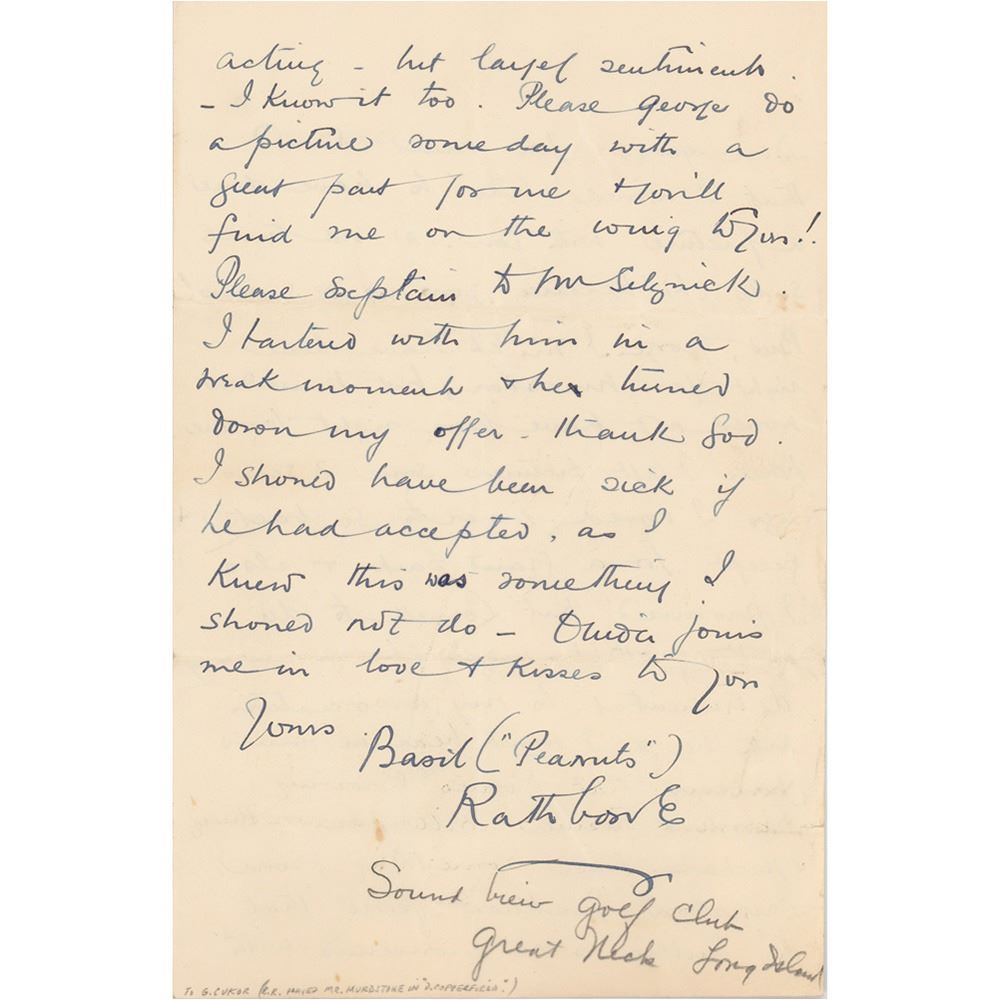 acting – but largely sentiment.
– I know it too. Please George do
a picture someday with a
great part for me & you'll
find me on the wing to you!!
Please explain to Mr Selznick.
I bartered with him in a
weak moment & he turned
down my offer – thank God.
I should have been sick if
he had accepted, as I
knew this was something I
should not do – Ouida joins
me in love & kisses to you
Yours
Basil ("Peanuts")
Rathbone
Sound View Golf Club
Great Neck Long Island
To G. CUKOR (B.R. PLAYED MR. MURDSTONE IN "D. COPPERFIELD".)